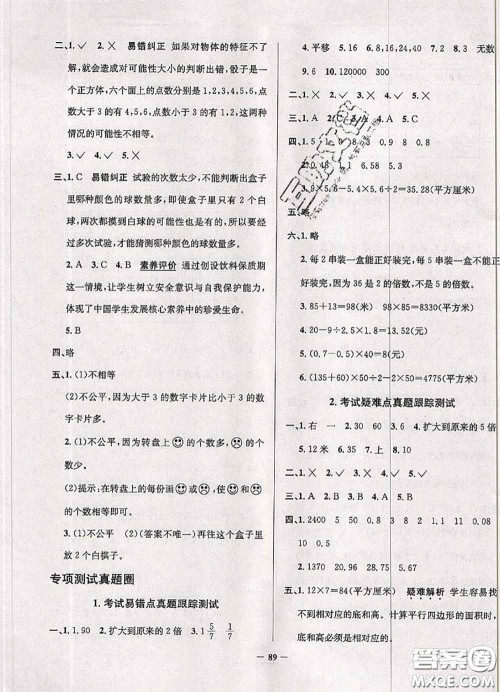 二、1.✓ 2.✗ 易错纠正 如果对物体的特征不了
解,就会造成对可能性大小的判断出错,骰子是一
个正方体,六个面上的点数分别是1,2,3,4,5,6,点
数大于3的有4,5,6,点数小于3的有1,2,这两种
情况的可能性不相等。
3.✓ 4.✓ 5.✓
三、1.C 易错纠正 试验的次数太少,不能判断出盒子
里哪种颜色的球数量多,即使盒子里只有2个白
球,两次都摸到白球的可能性也是有的,所以要经
过多次试验,才能猜测哪种颜色的球数量多。
2.A 3.C 4.B 素养评价 通过创设饮料保质期
这一情境,让学生树立安全意识与自我保护能力,
体现了中国学生发展核心素养中的珍爱生命。
5.B
四、略
五、1.(1)不相等
(2)不公平,因为大于3的数字卡片比小于3的数字
卡片多。
2.(1)不公平,因为转盘上的个数多,的个数少。
(2)提示:在转盘上的每份画或,使和
的个数相等即可。
3.(1)不公平 (2)(答案不唯一)再往这个盒子里
放2个白棋子。
专项测试真题圈
1.考试易错点真题跟踪测试
一、1.1.90 2.扩大到原来的2倍 3.1 5/7 1/7
4.平移 5.16 6.8,16,24,40 7.2 8.3 无数
9.6 10.120000 300
二、1.✗ 2.✗ 3.✗
三、1.A 2.C 3.A 4.A 5.C
四、1.5 0.51 0.13 0.9 8 0.8
2.0.48 1.1 6.58 1.35
3.9×5.6÷2=25.2(平方厘米)
五、略
六、1.略
2.每2串装一盒能正好装完,每5串装一盒不能正
好装完,因为36是2的倍数,不是5的倍数。
3.85+13=98(米) 98×85=8330(平方厘米)
4.20.7-2.5×1.8=13.52(元)
5.2.4×1.5÷2÷1=1.8(块)
6.(135+60)×50÷2-2×50=4775(平方厘米)
2.考试疑难点真题跟踪测试
一、1.右 一 2.30 60 3.6 4.扩大到原来的5倍
5.12米 6.35 7.上 8.0
二、1.✗ 2.✓ 3.✓ 4.✓
三、1.A 2.B 3.A 4.B 5.B
四、1.2400 50 5 0 8 29 2 1.11 0.08
0.11
2.1370 26.96 28.75 20.86
五、1.12×7=84(平方厘米) 疑难解析 学生容易找
不到相对应的底和高。计算平行四边形的面积时,
底和高必须是相对应的。
— 89 —
答案圈
MXQE.COM